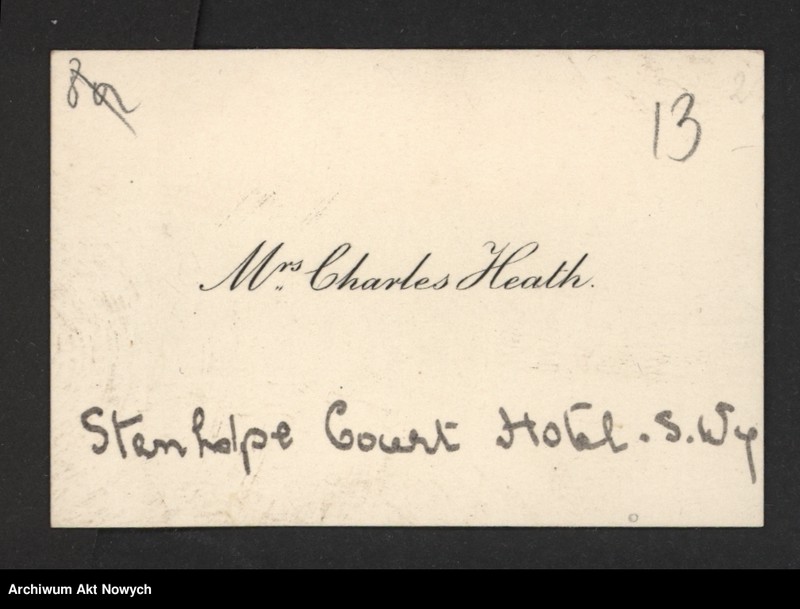 13
Mrs Charles Heath.
Stanhope Court Hotel. S.W7
Archiwum Akt Nowych